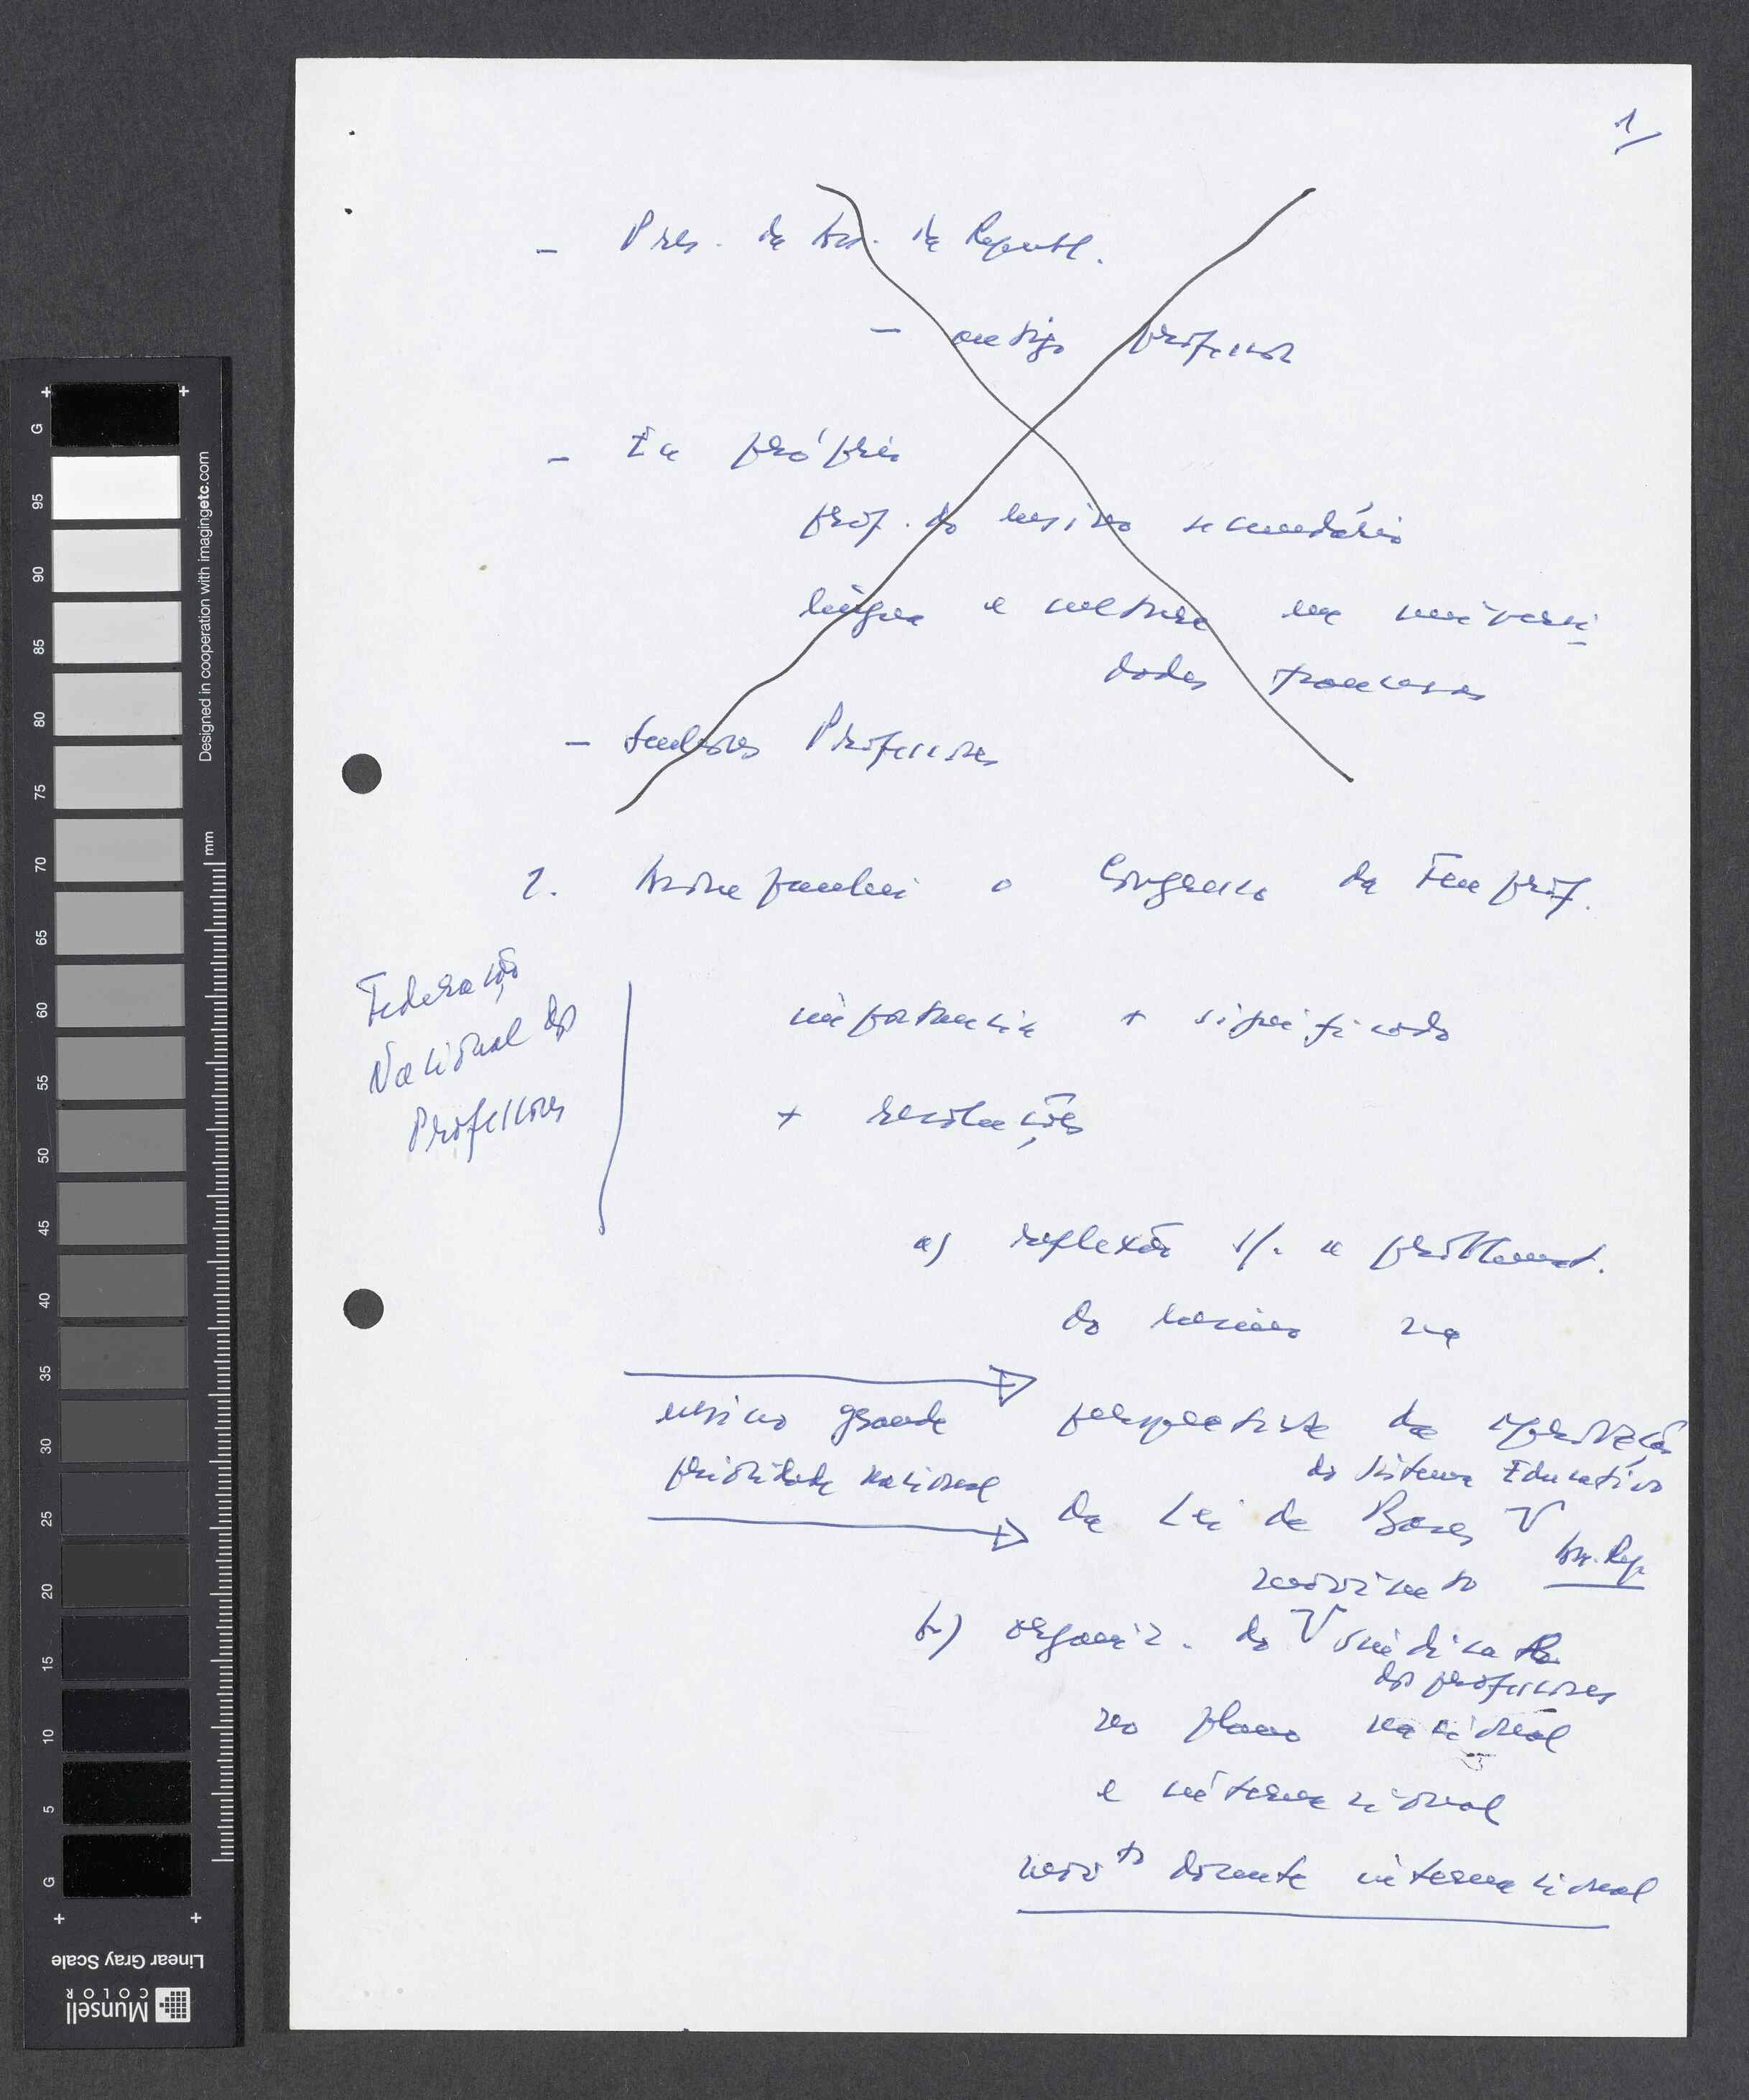 1/
- Pres. da Ass. da Republ.
- antigo professor
- Eu próprio
prof. do ensino secundário
língua e cultura em universi
dades francesas
- Senhores Professores
1. Acompanhei o Congresso da Fenprof.
Federação
Nacional dos
Professores
importância + significado
+ resoluções
a) reflexão s/. a problemat.
do ensino na
ensino grande
prioridade nacional
perspectiva da aprovação
do Sistema Educativo
da Lei de Bases V
Ass. Rep.
movimento
b) organiz. do V sindical
dos professores
no plano nacional
e internacional
movto docente internacional
G
95
90
85
80
75
70
65
60
55
50
45
40
35
30
25
20
15
10
5
G
mm
Designed in cooperation with imagingetc.com
Linear Gray Scale
Munsell
COLOR